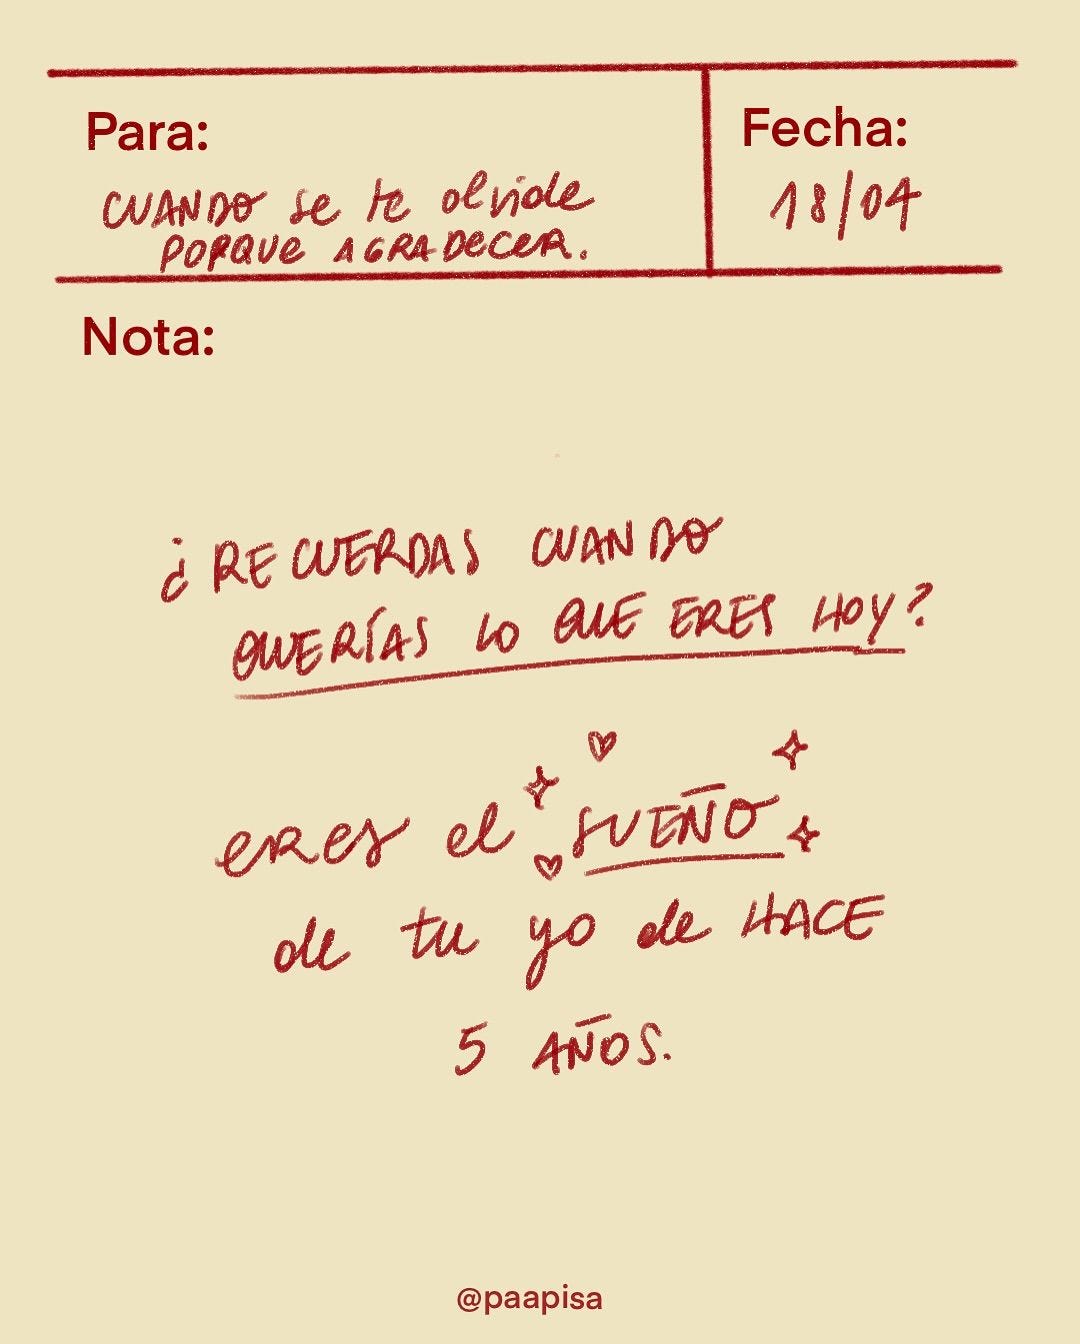 Para:
CUANDO se te olvide
PORQUE AGRADECER.
Fecha:
18/04
Nota:
¿RECUERDAS CUANDO
QUERÍAS LO QUE ERES HOY?
eres el SUEÑO
de tu yo de HACE
5 AÑOS.
@paapisa